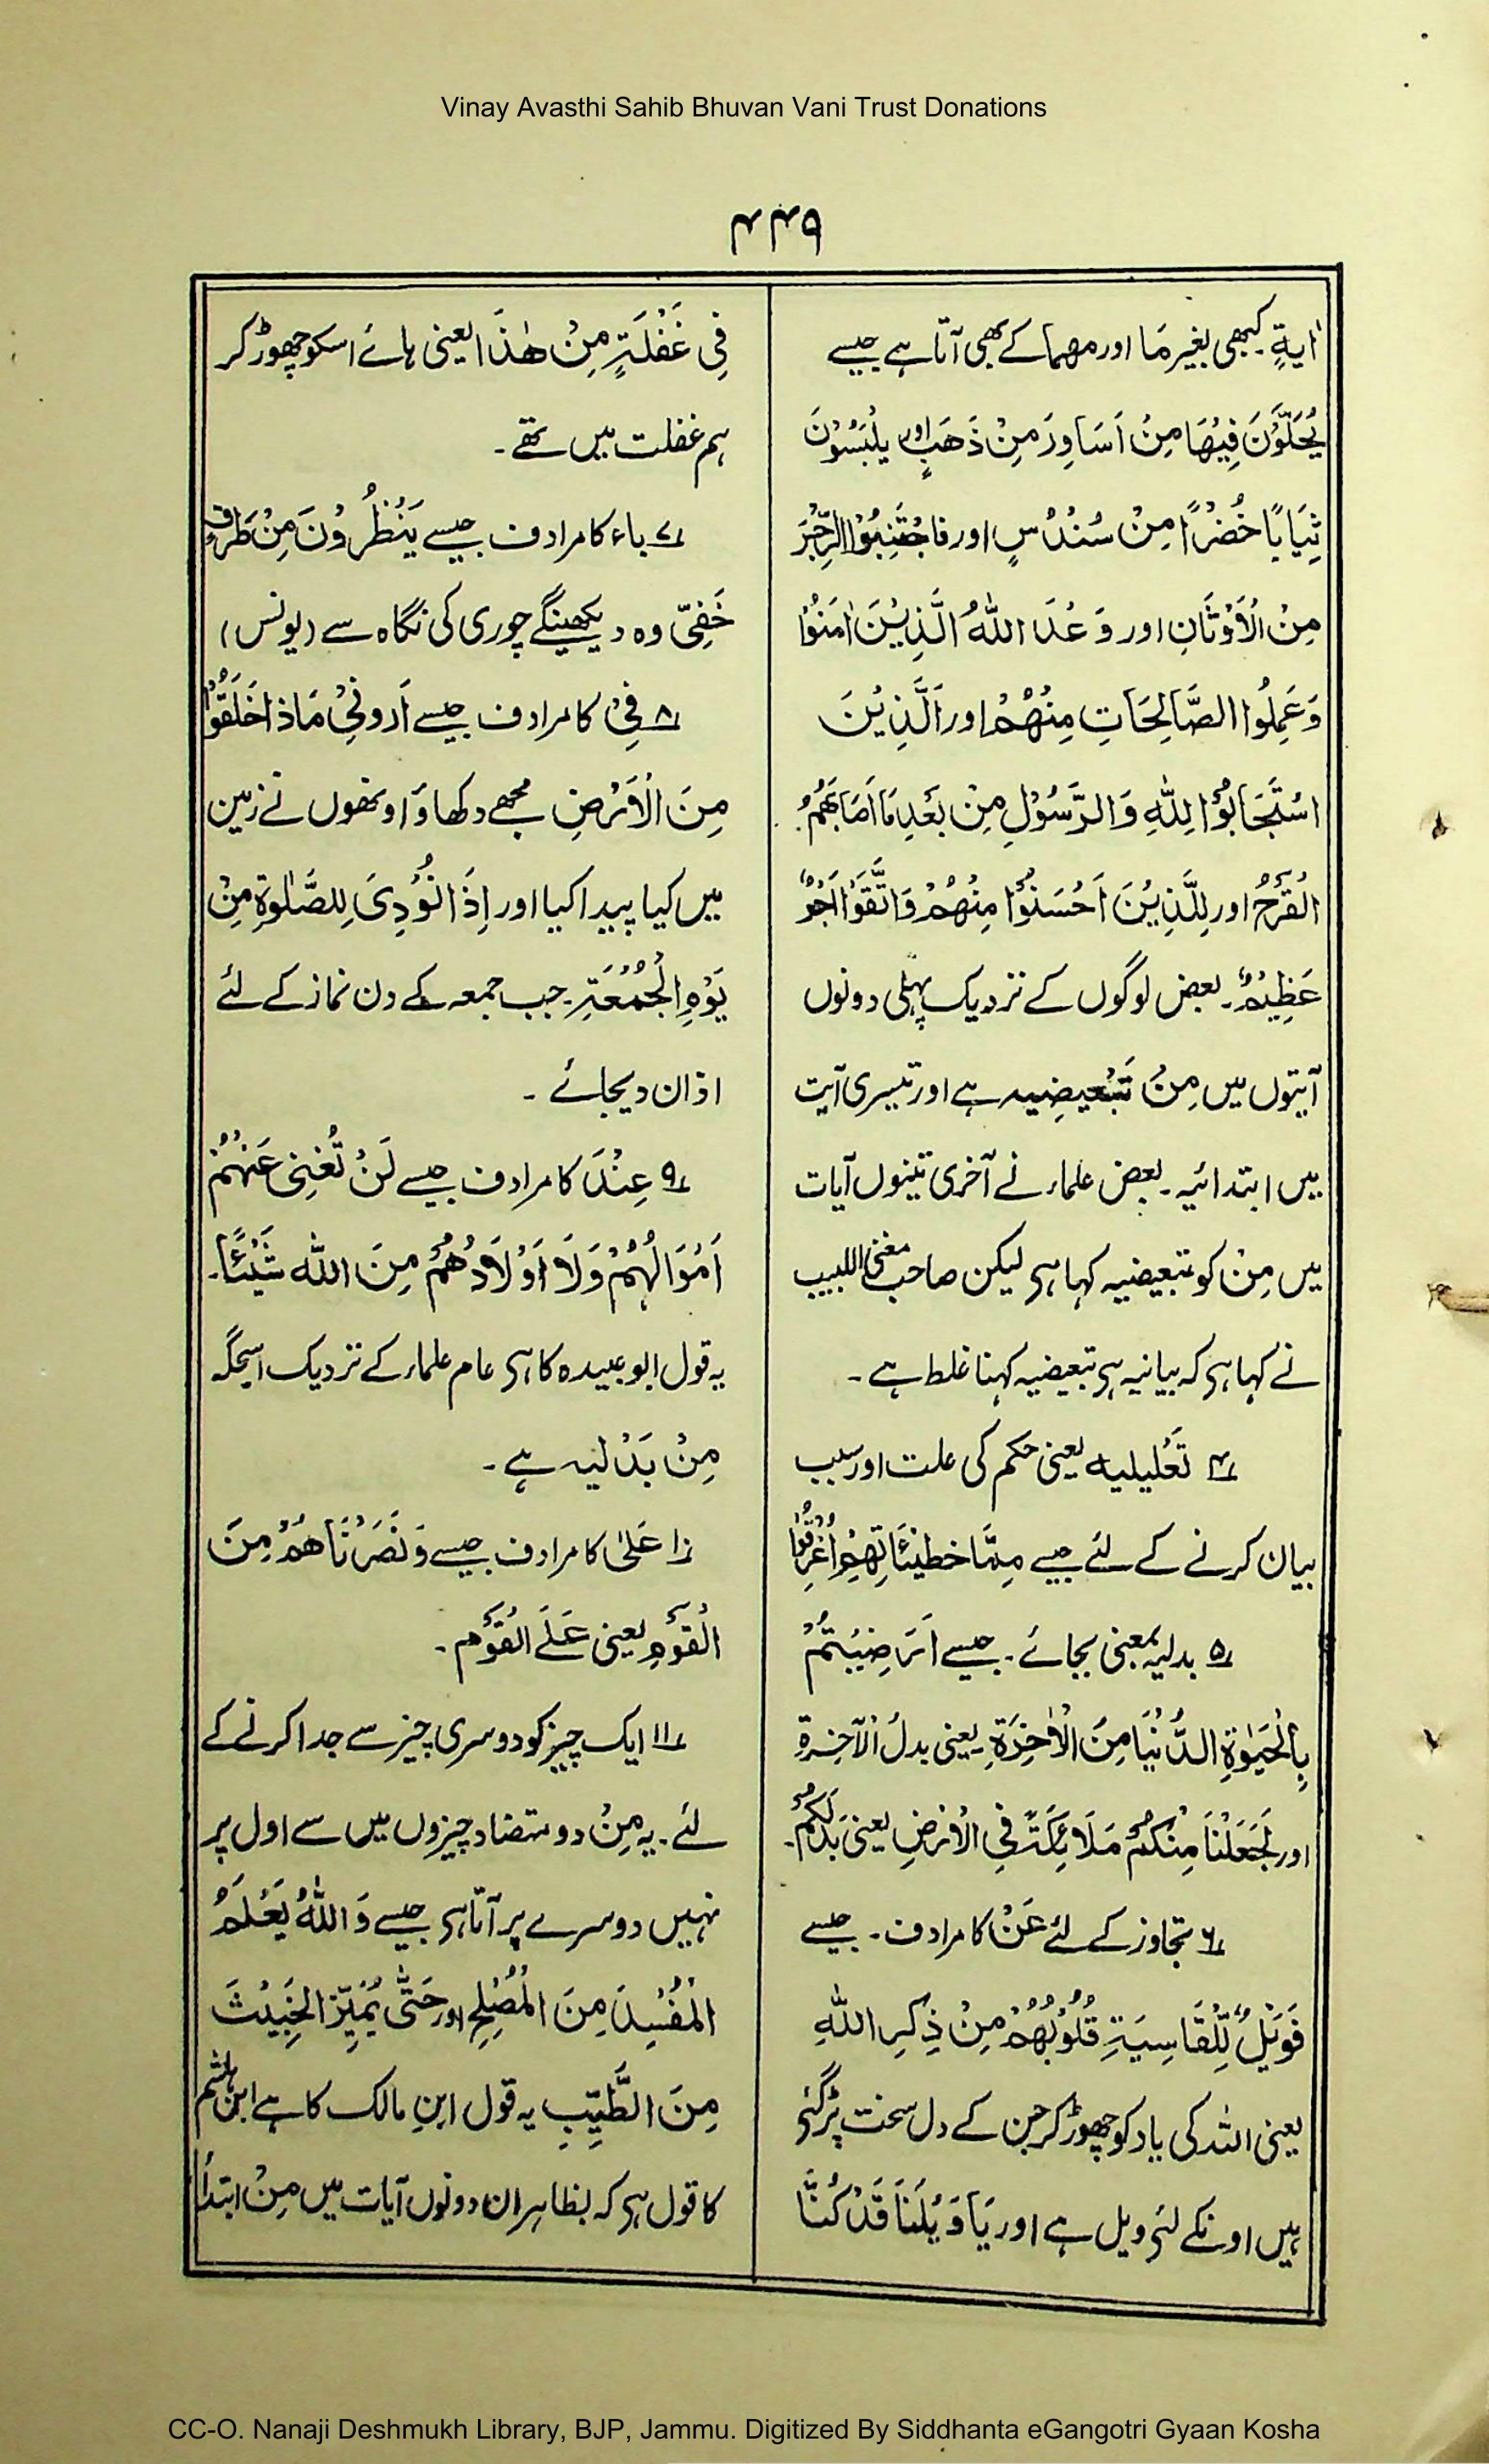 Vinay Avasthi Sahib Bhuvan Vani Trust Donations
اٰیةٍ۔ کبھی بغیر مَا اور مھما کے بھی آتا ہے جیسے
یُحَلَّوْنَ فِیْهَا مِنْ اَسَاوِرَ مِنْ ذَهَبٍ اور یلْبَسُوْنَ
ثِیَابًا خُضْرًا مِنْ سُنْدُسٍ اور فاجْتَنِبُوْا الرِّجْزَ
مِنْ الْاَوْثَانِ اور وَعْدَ اللّٰهُ الَّذِیْنَ اٰمَنُوْا
وَعَمِلُوا الصَّالِحَاتِ مِنْهُمْ اور اَلَّذِیْنَ
اسْتَجَابُوْا لِلّٰهِ وَالرَّسُوْلِ مِنْ بَعْدِ مَا اَصَابَهُمُ
الْقَرْحُ اور لِلَّذِیْنَ اَحْسَنُوْا مِنْهُمْ وَاتَّقَوْا اَجْرٌ
عَظِیْمٌ۔ بعض لوگوں کے نزدیک پہلی دونوں
آیتوں میں مِنْ تَبْعیضِیہ ہے اور تیسری آیت
میں ابتدائیہ۔ بعض علماء نے آخری تینوں آیات
میں مِنْ کو تبعیضیہ کہا ہی لیکن صاحب مغنی اللبیب
نے کہا ہی کہ بیانیہ ہی تبعیضیہ کہنا غلط ہے۔
۴ تَعْلیلیه یعنی حکم کی علت اور سبب
بیان کرنے کے لئے جیسے مِمَّا خطیئَاتِهِمْ اُغْرِقُوْا
۵ بدلیہ بمعنی بجائے۔ جیسے اَرَضِیْتُمْ
بِالْحَیٰوةِ الدُّنْیَا مِنَ الْاٰخِرَةِ۔ یعنی بدلُ الْآخِرةِ
اور لَجَعَلْنَا مِنْکُمْ مَلَائِکَةً فِی الْاَرْضِ یعنی بَدلَکُمْ۔
۶ تجاوز کے لئے عَنْ کا مرادف۔ جیسے
فَوَیْلٌ لِّلْقَاسِیَةِ قُلُوْبُهُمْ مِنْ ذِکِرِ اللّٰهِ
یعنی اللہ کی یاد کو چھوڑ کر جن کے دل سخت پڑگئے
ہیں اونکے لئے ویل ہے اور یَا وَیْلَنَا قَدْ کُنَّا
فِی غَفْلَةٍ مِنْ هٰذَا یعنی ہائے اسکو چھوڑ کر
ہم غفلت میں تھے۔
۷ باء کا مرادف جیسے یَنْظُرُوْنَ مِنْ طَرْفٍ
خَفِیّ وہ دیکھینگے چوری کی نگاہ سے (یونس)
۸ فِیْ کا مرادف جیسے اَرونِیْ مَاذا خَلَقُوْا
مِنَ الْاَرْضِ مجھے دکھاوَ اونھوں نے زمین
میں کیا پیدا کیا اور اِذَا نُوْدِیَ لِلصَّلٰوةِ مِنْ
یَوْمِ الْجُمُعَةِ۔ جب جمعہ کے دن نماز کے لئے
اذان دیجائے۔
۹ عِنْدَ کا مرادف جیسے لَنْ تُغْنِیَ عَنْهُمْ
اَمْوَالُهُمْ وَلَا اَوْلَادُهُمْ مِنَ اللّٰه شَیْئًا۔
یہ قول ابو عبیدہ کا ہی عام علماء کے نزدیک اسجگہ
مِنْ بَدْلیہ ہے۔
۱۰ عَلیٰ کا مرادف جیسے وَنَصَرْنَاهُمْ مِنَ
الْقَوْمِ یعنی عَلَے الْقَوْمِ۔
۱۱ ایک چیز کو دوسری چیز سے جدا کرنے کے
لئے۔ یہ مِنْ دو متضاد چیزوں میں سے اول پر
نہیں دوسرے پر آتا ہی جیسے وَاللّٰهُ یَعْلَمُ
الْمُفْسِدَ مِنَ الْمُصْلِحِ اور حَتّٰی یُمَیِّزَ الْخَبِیْثَ
مِنَ الطَّیِّبِ یہ قول ابنِ مالک کا ہے ابن ہشم
کا قول ہی کہ بظاہر ان دونوں آیات میں مِنْ ابتدا
CC-O. Nanaji Deshmukh Library, BJP, Jammu. Digitized By Siddhanta eGangotri Gyaan Kosha